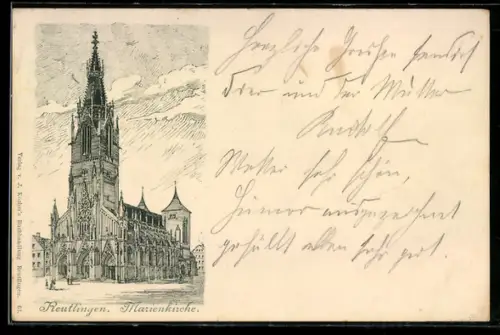 Herzliche Grüße sendet
Dir und der Mutter
Rudolf
Wetter sehr schön,
Humor ausgezeichnet
gefällt allen sehr gut.
Reutlingen. Marienkirche.
Verlag v. J. Kocher's Buchhandlung Reutlingen.